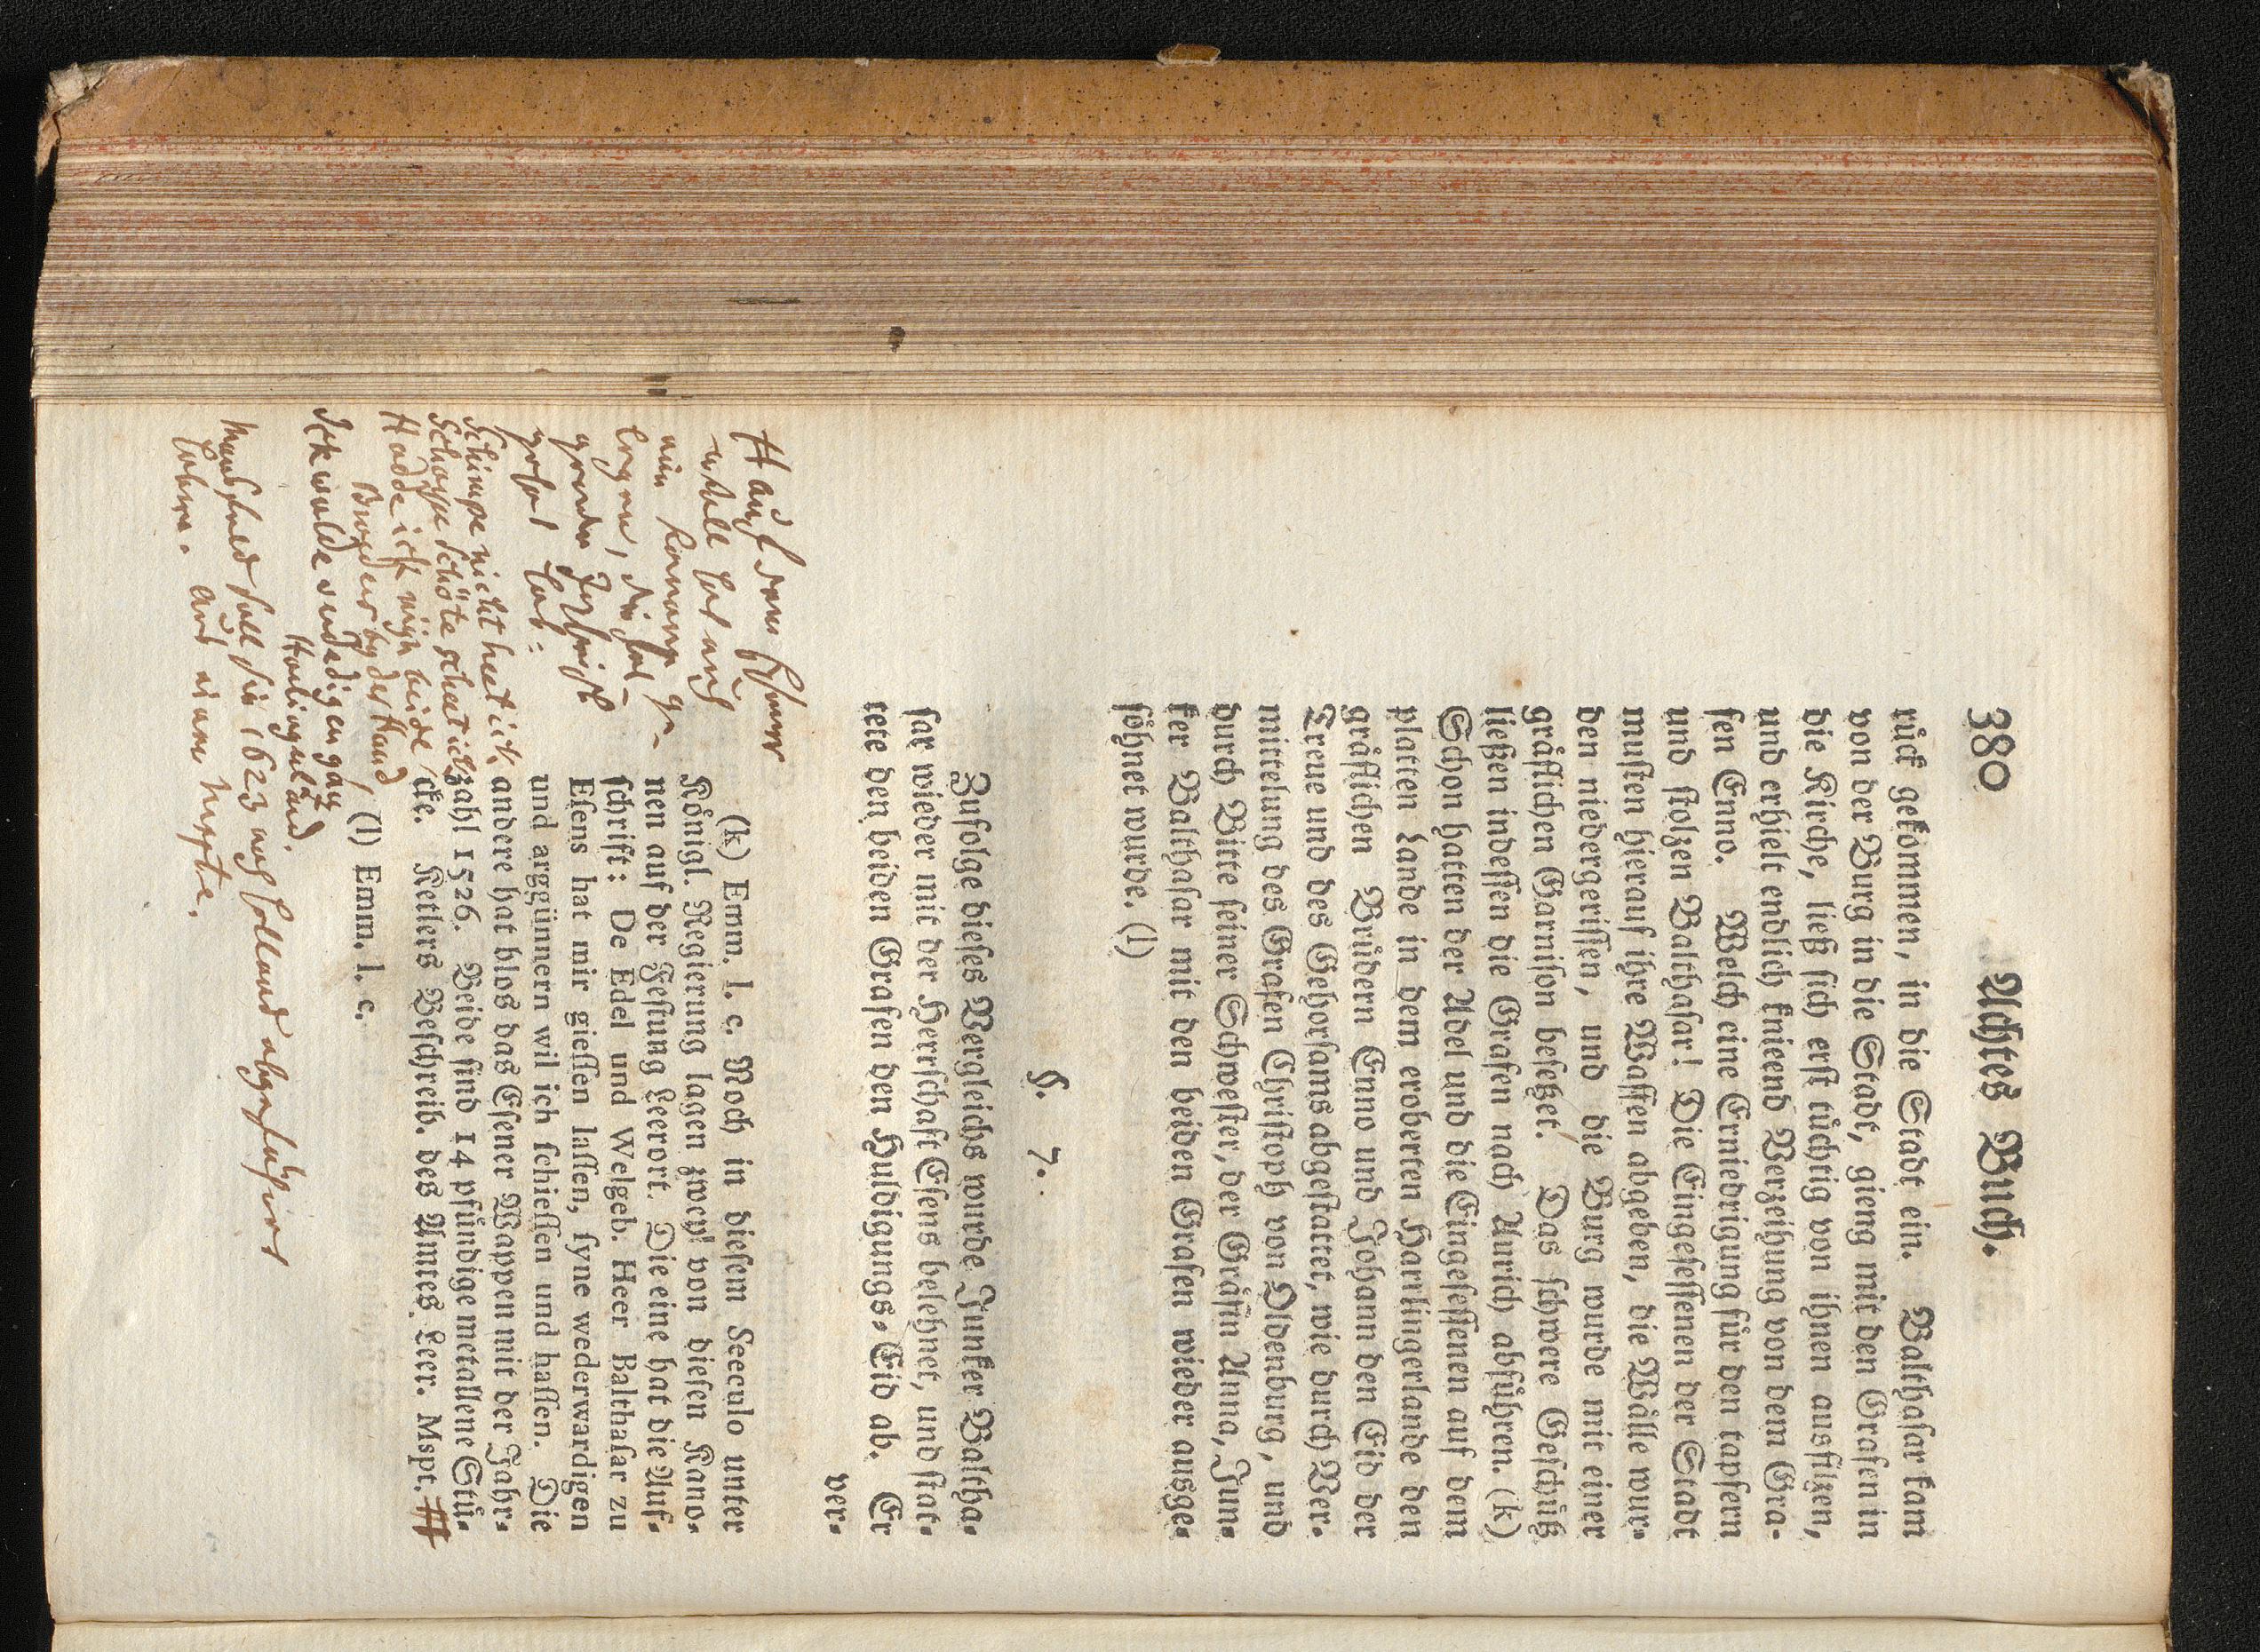 380 Achtes Buch.
rück gekommen, in die Stadt ein. Balthasar kam
von der Burg in die Stadt, gieng mit den Grafen in
die Kirche, ließ sich erst tüchtig von ihnen ausfilzen,
und erhielt endlich knieend Verzeihung von dem Gra-
fen Enno. Welch eine Erniedrigung für den tapfern
und stolzen Balthasar! Die Eingesessenen der Stadt
musten hierauf ihre Waffen abgeben, die Wälle wur-
den niedergerissen, und die Burg wurde mit einer
gräflichen Garnison besetzet. Das schwere Geschütz
ließen indessen die Grafen nach Aurich abführen. (k)
Schon hatten der Adel und die Eingesessenen auf dem
platten Lande in dem eroberten Harlingerlande den
gräflichen Brüdern Enno und Johann den Eid der
Treue und des Gehorsams abgestattet, wie durch Ver-
mittelung des Grafen Christoph von Oldenburg, und
durch Bitte seiner Schwester, der Gräfin Anna, Jun-
ker Balthasar mit den beiden Grafen wieder ausge-
söhnet wurde. (l)
§. 7.
Zufolge dieses Vergleichs wurde Junker Baltha-
sar wieder mit der Herrschaft Esens belehnet, und stat-
tete den beiden Grafen den Huldigungs-Eid ab. Er
ver-
(k) Emm. l. c. Noch in diesem Seeculo unter
Königl. Regierung lagen zwey von diesen Kano-
nen auf der Festung Leerort. Die eine hat die Auf-
schrift: De Edel und Welgeb. Heer Balthasar zu
Esens hat mir giessen lassen, syne wederwardigen
und arggünnern wil ich schiessen und hassen. Die
andere hat blos das Esener Wappen mit der Jahr-
zahl 1526. Beide sind 14 pfündige metallene Stü-
cke. Ketlers Beschreib. des Amtes Leer. Mspt. #
(l) Emm. l. c.
# auf dem
hat auch
eine Kanone ge-
legen, die fol-
gende Inschrift
gehabt hat:
Schimpe nicht heet ick,
Schöte scheet ick
Hadde ick mijn beide
Broeder by der Hand
Ick wolde verdedigen gantz
Harlingerland.
Mansfeld soll sie 1623 nach Holland abgeführt
haben. Aus einem Mspte.